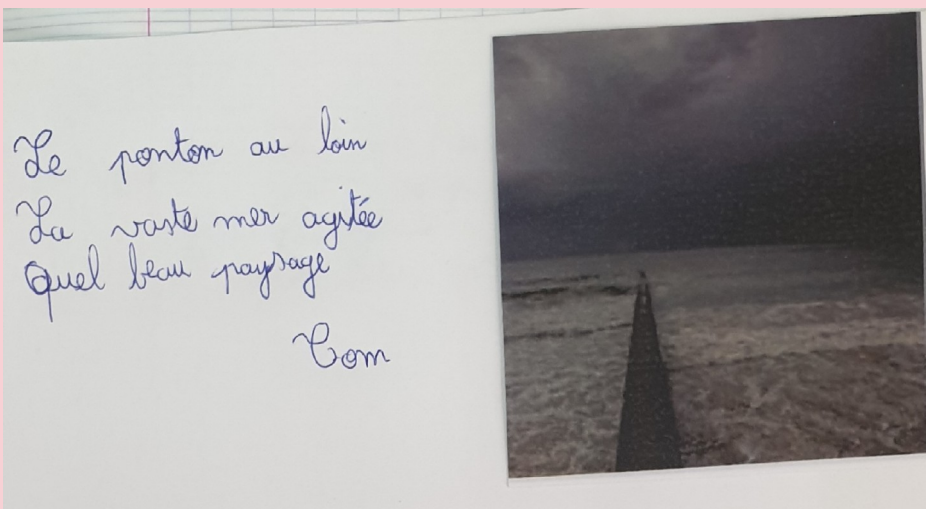 Le ponton au loin
La vaste mer agitée
Quel beau paysage
Tom